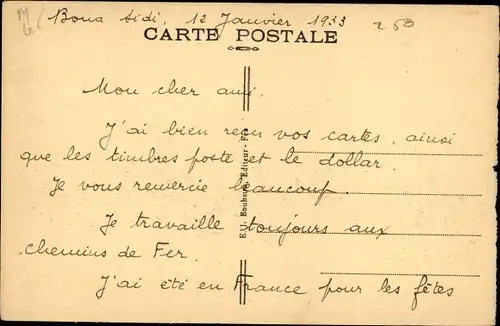 Bou Sidi, 12 Janvier 1933
250
CARTE POSTALE
Mon cher ami.
J'ai bien reçu vos cartes, ainsi
que les timbres poste et le dollar.
Je vous remercie beaucoup.
Je travaille toujours aux
chemins de Fer.
J'ai été en France pour les fêtes
Bouhsira, Editeur - Fès